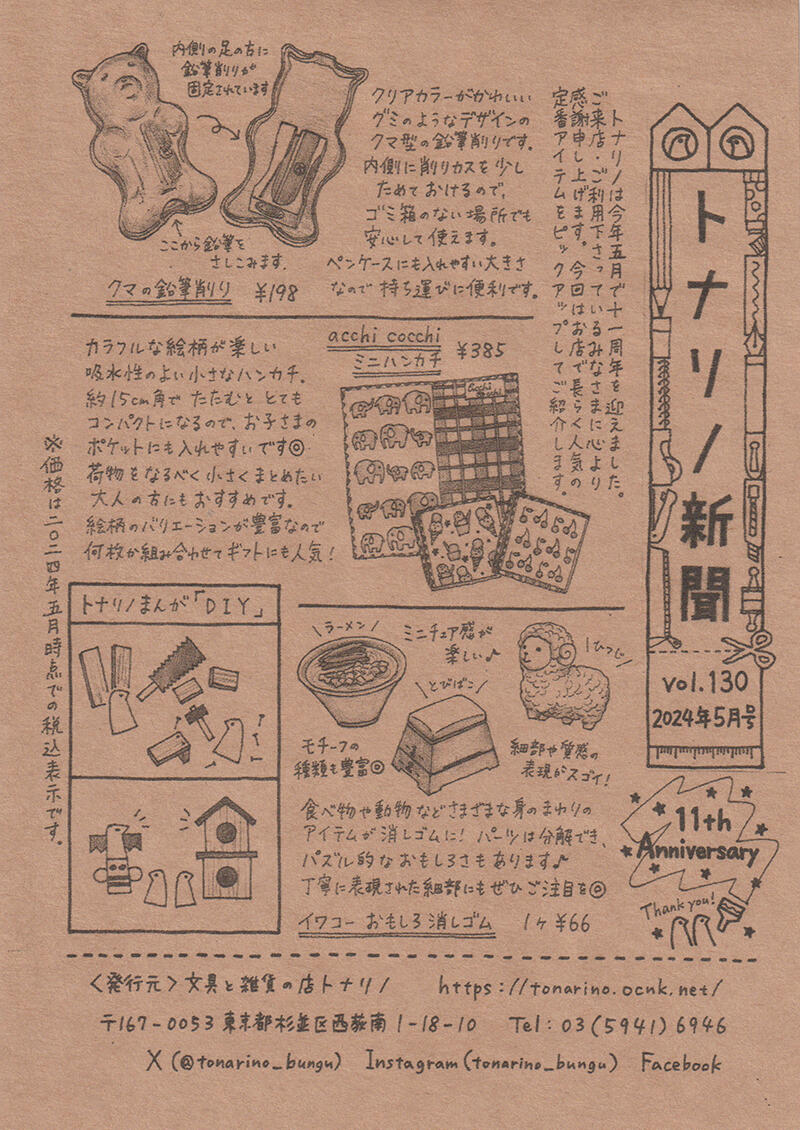 トナリノ新聞
vol.130
2024年5月号
11th
Anniversary
Thank you!
トナリノは今年五月で十一周年を迎えました。
ご来店・ご利用下さっているみなさまに心より
感謝申し上げます。今回はお店で長らく人気の
定番アイテムをピックアップしてご紹介します。
内側の足の方に
鉛筆削りが
固定されています
ここから鉛筆を
さしこみます。
クマの鉛筆削り ¥198
クリアカラーがかわいい
グミのようなデザインの
クマ型の鉛筆削りです。
内側に削りカスを少し
ためておけるので、
ゴミ箱のない場所でも
安心して使えます。
ペンケースにも入れやすい大きさ
なので持ち運びに便利です。
acchi cocchi
ミニハンカチ ¥385
カラフルな絵柄が楽しい
吸水性のよい小さなハンカチ。
約15cm角でたたむととても
コンパクトになるので、お子さまの
ポケットにも入れやすいです◎
荷物をなるべく小さくまとめたい
大人の方にもおすすめです。
絵柄のバリエーションが豊富なので
何枚か組み合わせてギフトにも人気!
※価格は二〇二四年五月時点での税込表示です。
トナリノまんが「DIY」
\ラーメン/
ミニチュア感が
楽しい♪
\とびばこ/
\ひつじ/
モチーフの
種類も豊富◎
細部や質感の
表現がスゴイ!
食べ物や動物などさまざまな身のまわりの
アイテムが消しゴムに! パーツは分解でき、
パズル的なおもしろさもあります♪
丁寧に表現された細部にもぜひご注目を◎
イワコー おもしろ消しゴム 1ヶ ¥66
<発行元> 文具と雑貨の店トナリノ https://tonarino.ocnk.net/
〒167-0053 東京都杉並区西荻南1-18-10 Tel: 03(5941)6946
X (@tonarino_bungu) Instagram (tonarino_bungu) Facebook